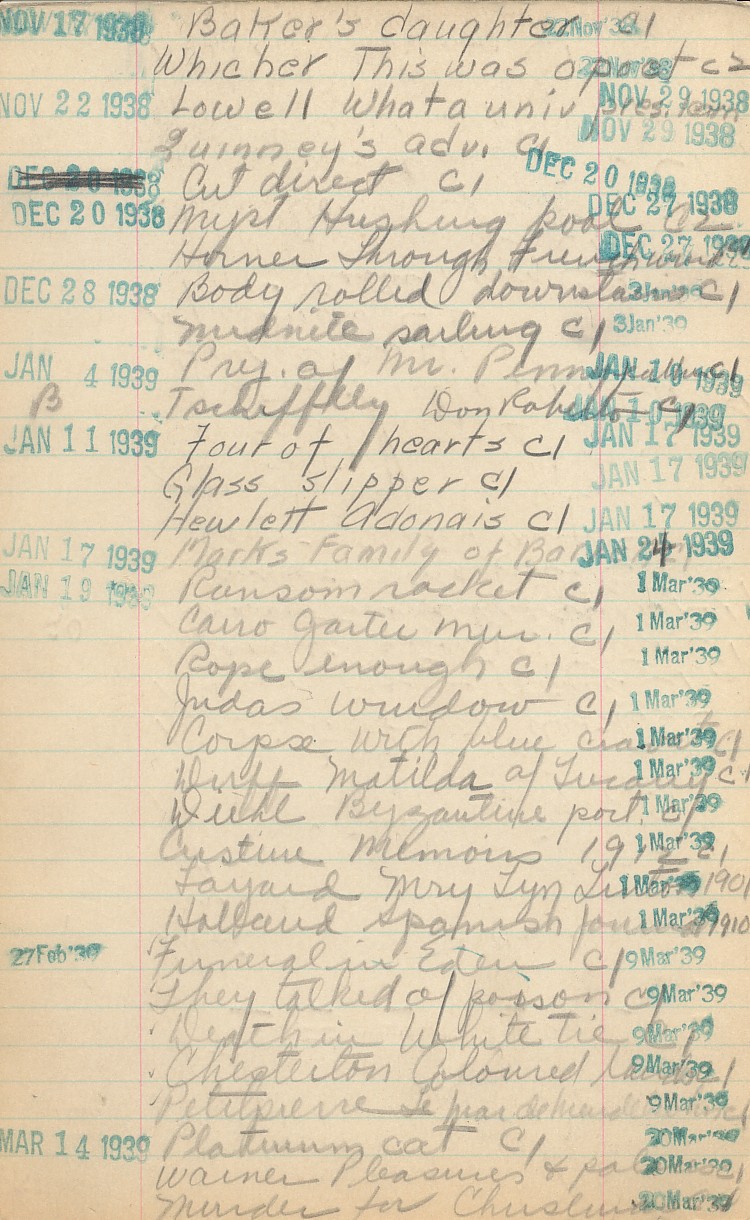 NOV 17 1938 Baker's daughter c1 22 Nov '38
Whicher This was a poet c2 22 Nov '38
NOV 22 1938 Lowell What a univ. NOV 29 1938
Quinney's adv. c1 NOV 29 1938
DEC 20 1938 Cut direct c1 DEC 20 1938
DEC 20 1938 Myst Hushing pool c2 DEC 27 1938
Horner Through French DEC 27 1938
DEC 28 1938 Body rolled downstairs c1 3 Jan '39
Midnite sailing c1 3 Jan '39
JAN 4 1939 Prej. of Mr. Penny c1 JAN 10 1939
B Tschiffely Don Roberto c1 JAN 10 1939
JAN 11 1939 Four of hearts c1 JAN 17 1939
Glass slipper c1 JAN 17 1939
Hewlett Adonais c1 JAN 17 1939
JAN 17 1939 Marks Family of JAN 24 1939
JAN 19 1939 Ransom racket c1 1 Mar '39
Cairo garter mur. c1 1 Mar '39
Rope enough c1 1 Mar '39
Judas window c1 1 Mar '39
Corpse with blue cravat c1 1 Mar '39
Duff Matilda of Tuscany c1 1 Mar '39
Diehl Byzantine port. c1 1 Mar '39
Custine Memoirs 1912 c1 1 Mar '39
1 Mar '39 1901
Holland Spanish 1 Mar '39 1910
27 Feb '39 Funeral in Eden c1 9 Mar '39
They talked of poison c1 9 Mar '39
Death in White tie c1 9 Mar '39
Chesterton Coloured lands c1 9 Mar '39
Petitpierre 9 Mar '39
MAR 14 1939 Platinum cat c1 20 Mar '39
Warner Pleasures & c1 20 Mar '39
Murder for 20 Mar '39